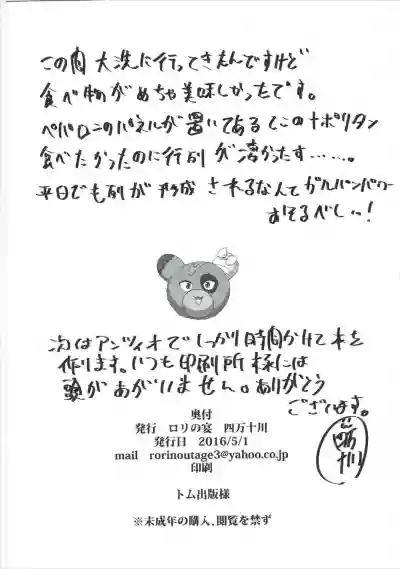 この間大洗に行ってきたんですけど
食べ物がめちゃ美味しかったです。
ペパロニのパネルが置いてあるとこのナポリタン
食べたかったのに行列が凄かったす……。
平日でも列が形成されるなんてガルパンパワー
おそるべし…!
次はアンツィオでしっかり時間かけて本を
作ります。いつも印刷所様には
頭があがいません。ありがとう
ございます。
四万十川
奥付
発行 ロリの宴 四万十川
発行日 2016/5/1
mail rorinoutage3@yahoo.co.jp
印刷
トム出版様
※未成年の購入、閲覧を禁ず